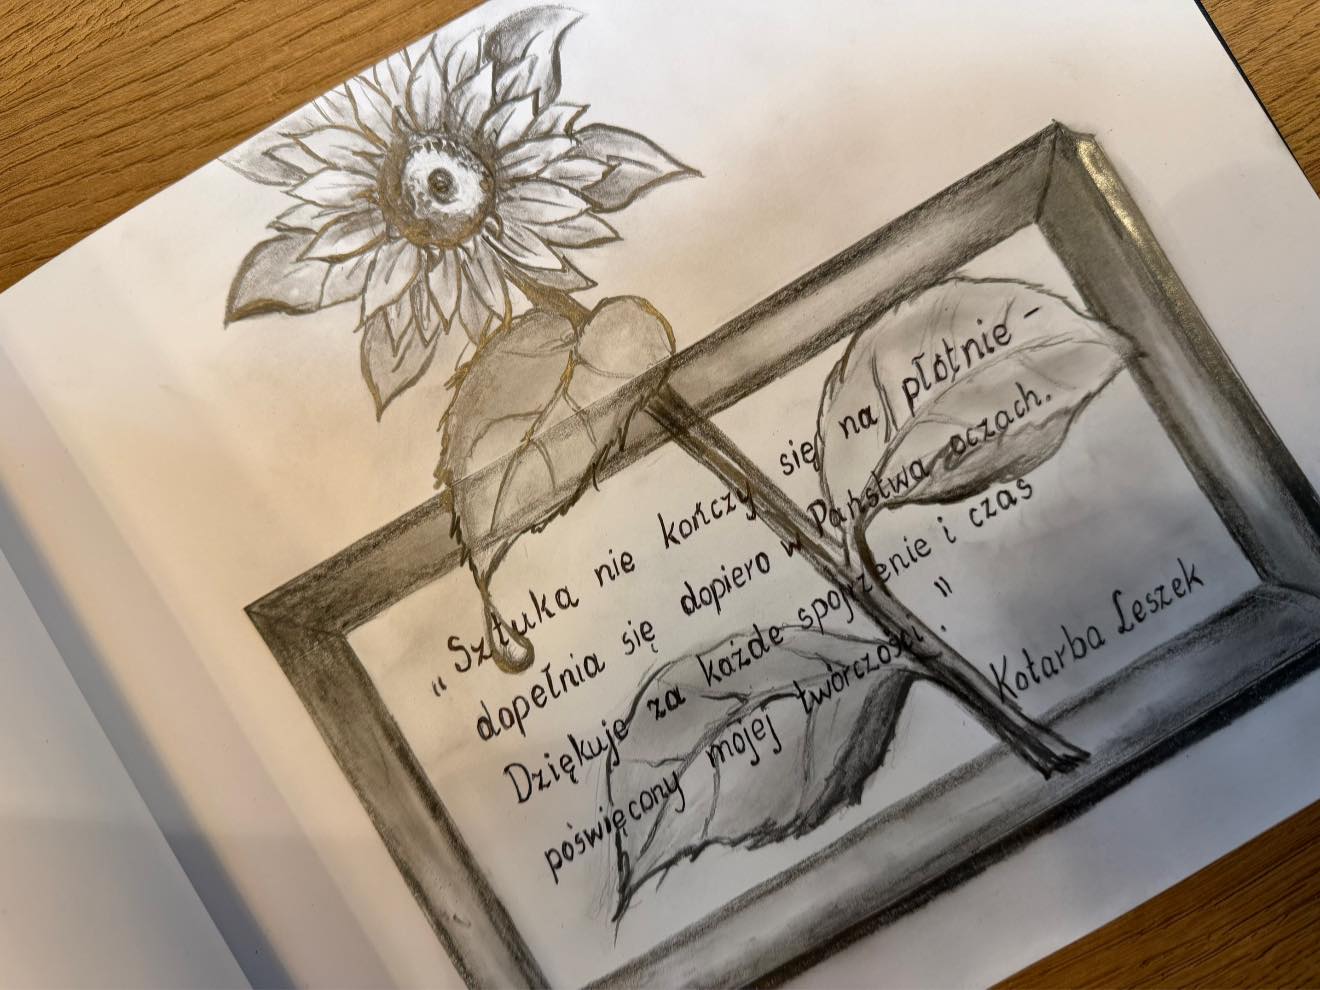 "Sztuka nie kończy się na płótnie -
dopełnia się dopiero w Państwa oczach.
Dziękuję za każde spojrzenie i czas
poświęcony mojej twórczości."
Kotarba Leszek